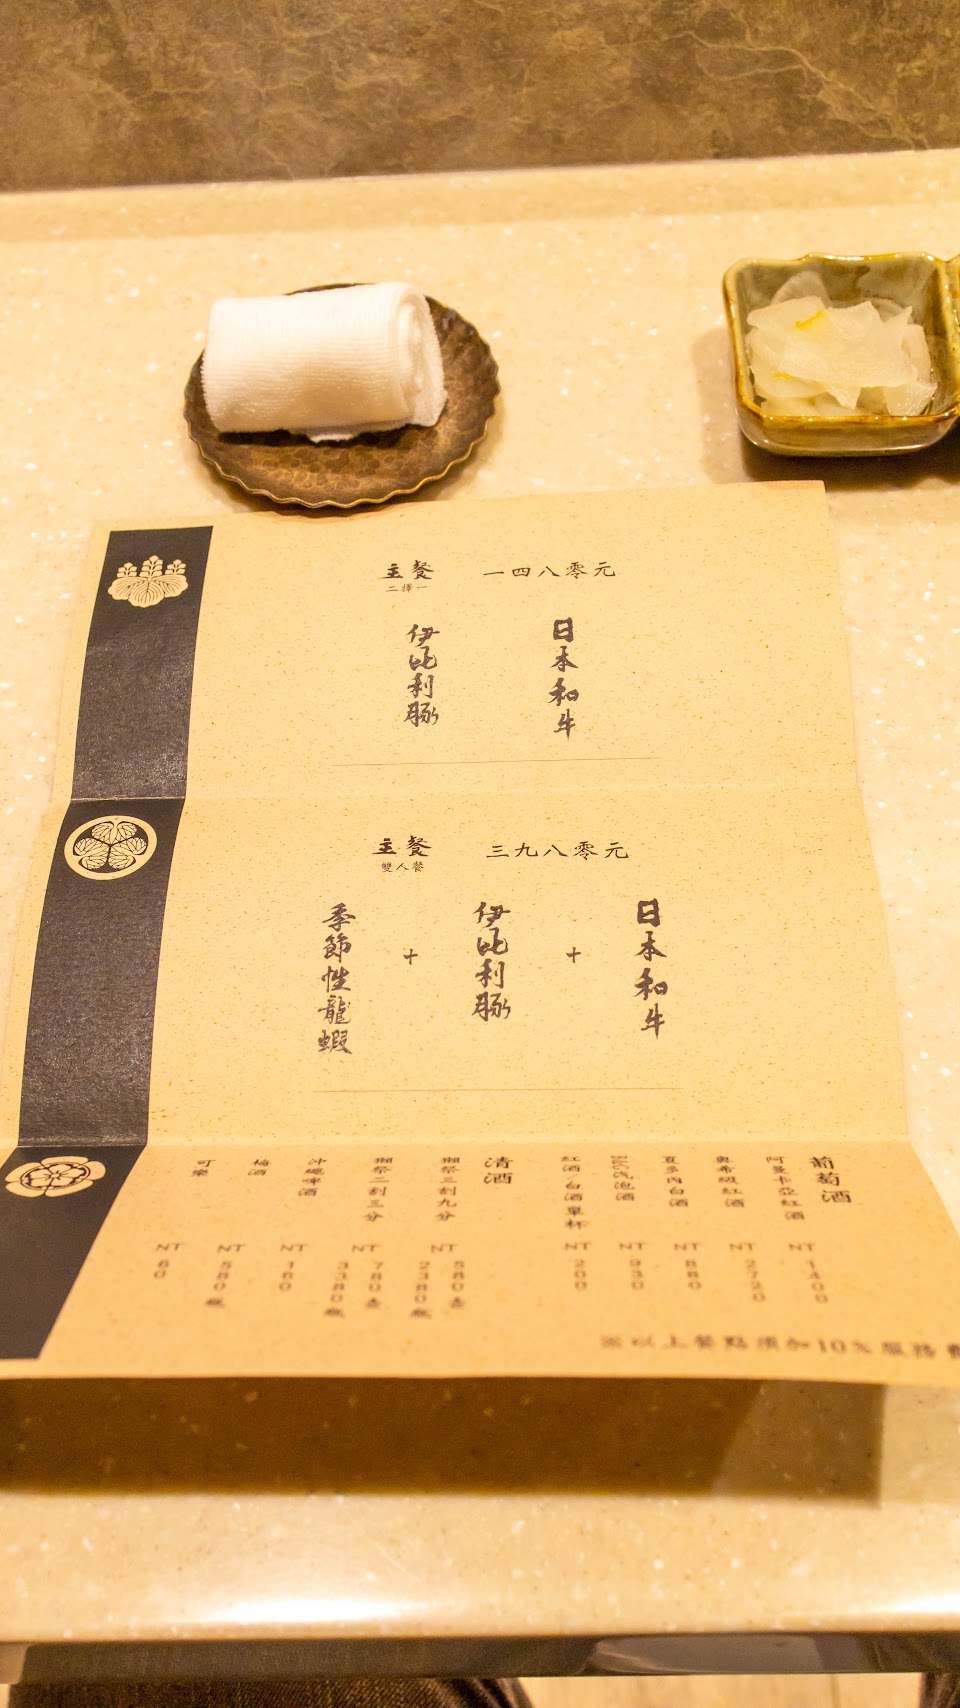 主餐 一四八零元
二擇一
日本和牛
伊比利豚
主餐 三九八零元
雙人餐
日本和牛
+
伊比利豚
+
季節性龍蝦
葡萄酒
阿曼卡亞紅酒 NT 1400
奧希級紅酒 NT 2720
夏多內白酒 NT 880
氣泡酒 NT 930
紅酒/白酒單杯 NT 200
清酒
獺祭三割九分 NT 580壺 2380瓶
獺祭二割三分 NT 780壺 3380瓶
沖繩啤酒 NT 160
梅酒 NT 580瓶
可樂 NT 60
※以上餐點須加10%服務費